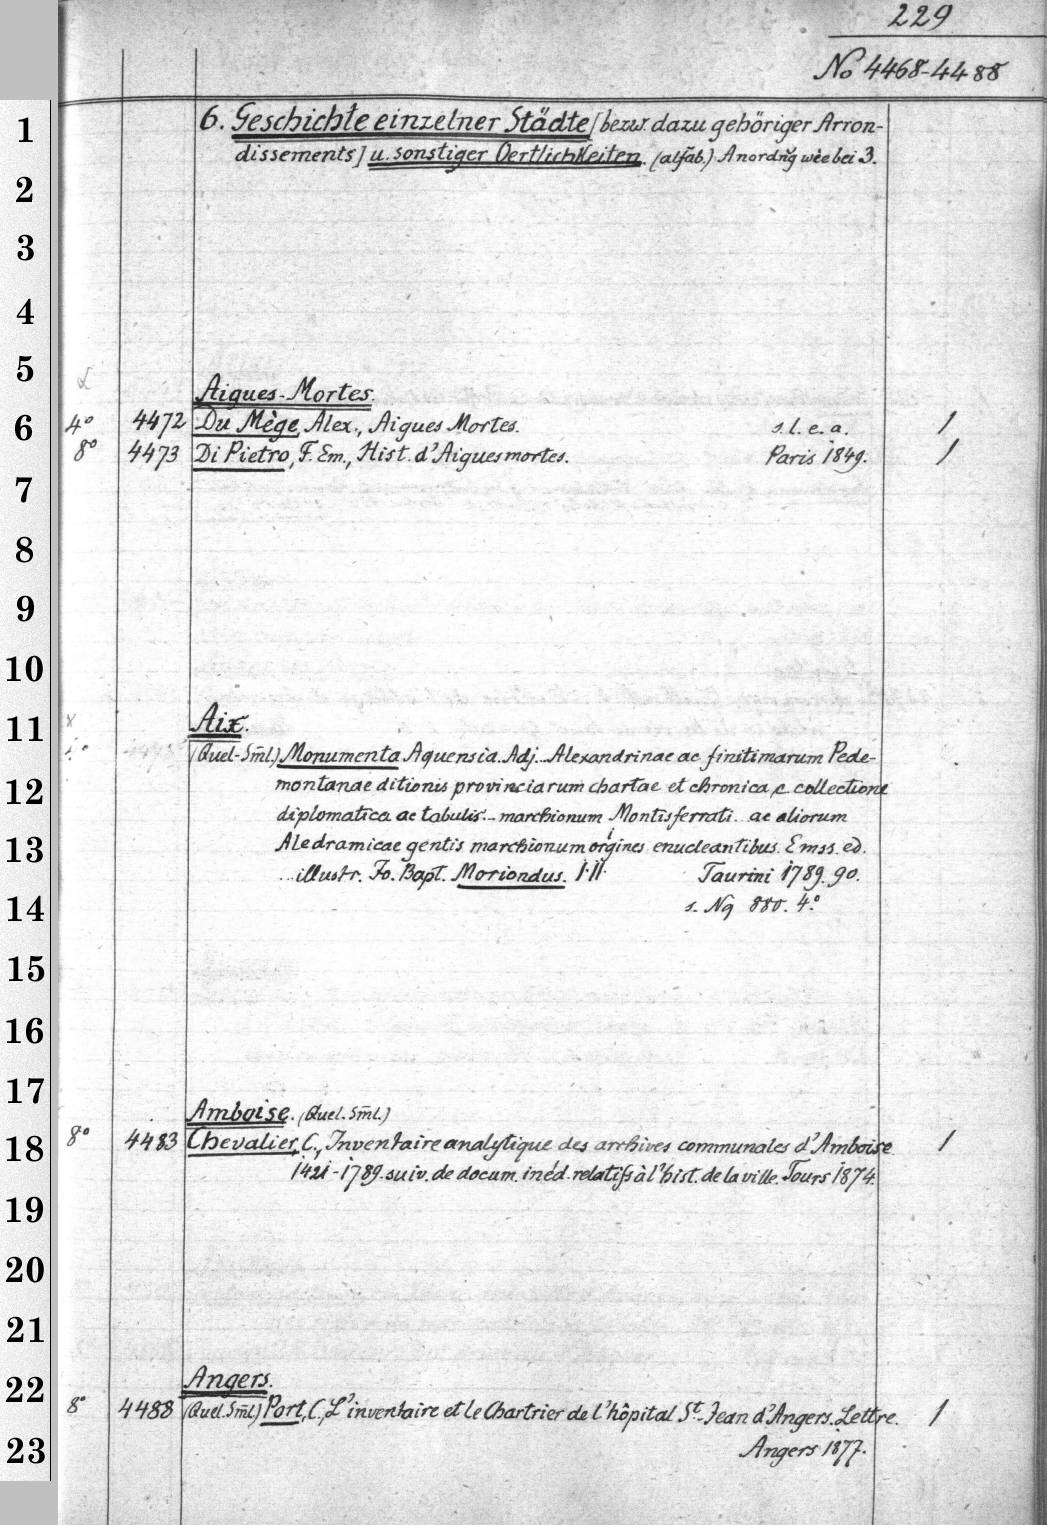 229
No 4468-4488
6. Geschichte einzelner Städte [bezw. dazu gehöriger Arron-
dissements] u. sonstiger Oertlichkeiten. (alfab.) Anordng wie bei 3.
Aigues-Mortes.
4° 4472 Du Mège, Alex., Aigues Mortes. s. l. e. a. 1
8° 4473 Di Pietro, F. Em., Hist. d'Aiguesmortes. Paris 1849. 1
Aix.
(Quel-Sml.) Monumenta Aquensia. Adj... Alexandrinae ac finitimarum Pede-
montanae ditionis provinciarum chartae et chronica, e collectione
diplomatica ac tabulis... marchionum Montisferrati... ac aliorum
Aledramicae gentis marchionum origines enucleantibus. Emss. ed.
...illustr. Jo. Bapt. Moriondus. I.II. Taurini 1789. 90.
s. Nq 880. 4°
Amboise. (Quel. Sml.)
8° 4483 Chevalier, C., Inventaire analytique des archives communales d'Amboise 1
1421-1789. suiv. de docum. inéd. relatifs à l'hist. de la ville. Tours 1874.
Angers.
8° 4488 (Quel. Sml.) Port, C., L'inventaire et le Chartrier de l'hôpital St-Jean d'Angers. Lettre. 1
Angers 1877.
1
2
3
4
5
6
7
8
9
10
11
12
13
14
15
16
17
18
19
20
21
22
23